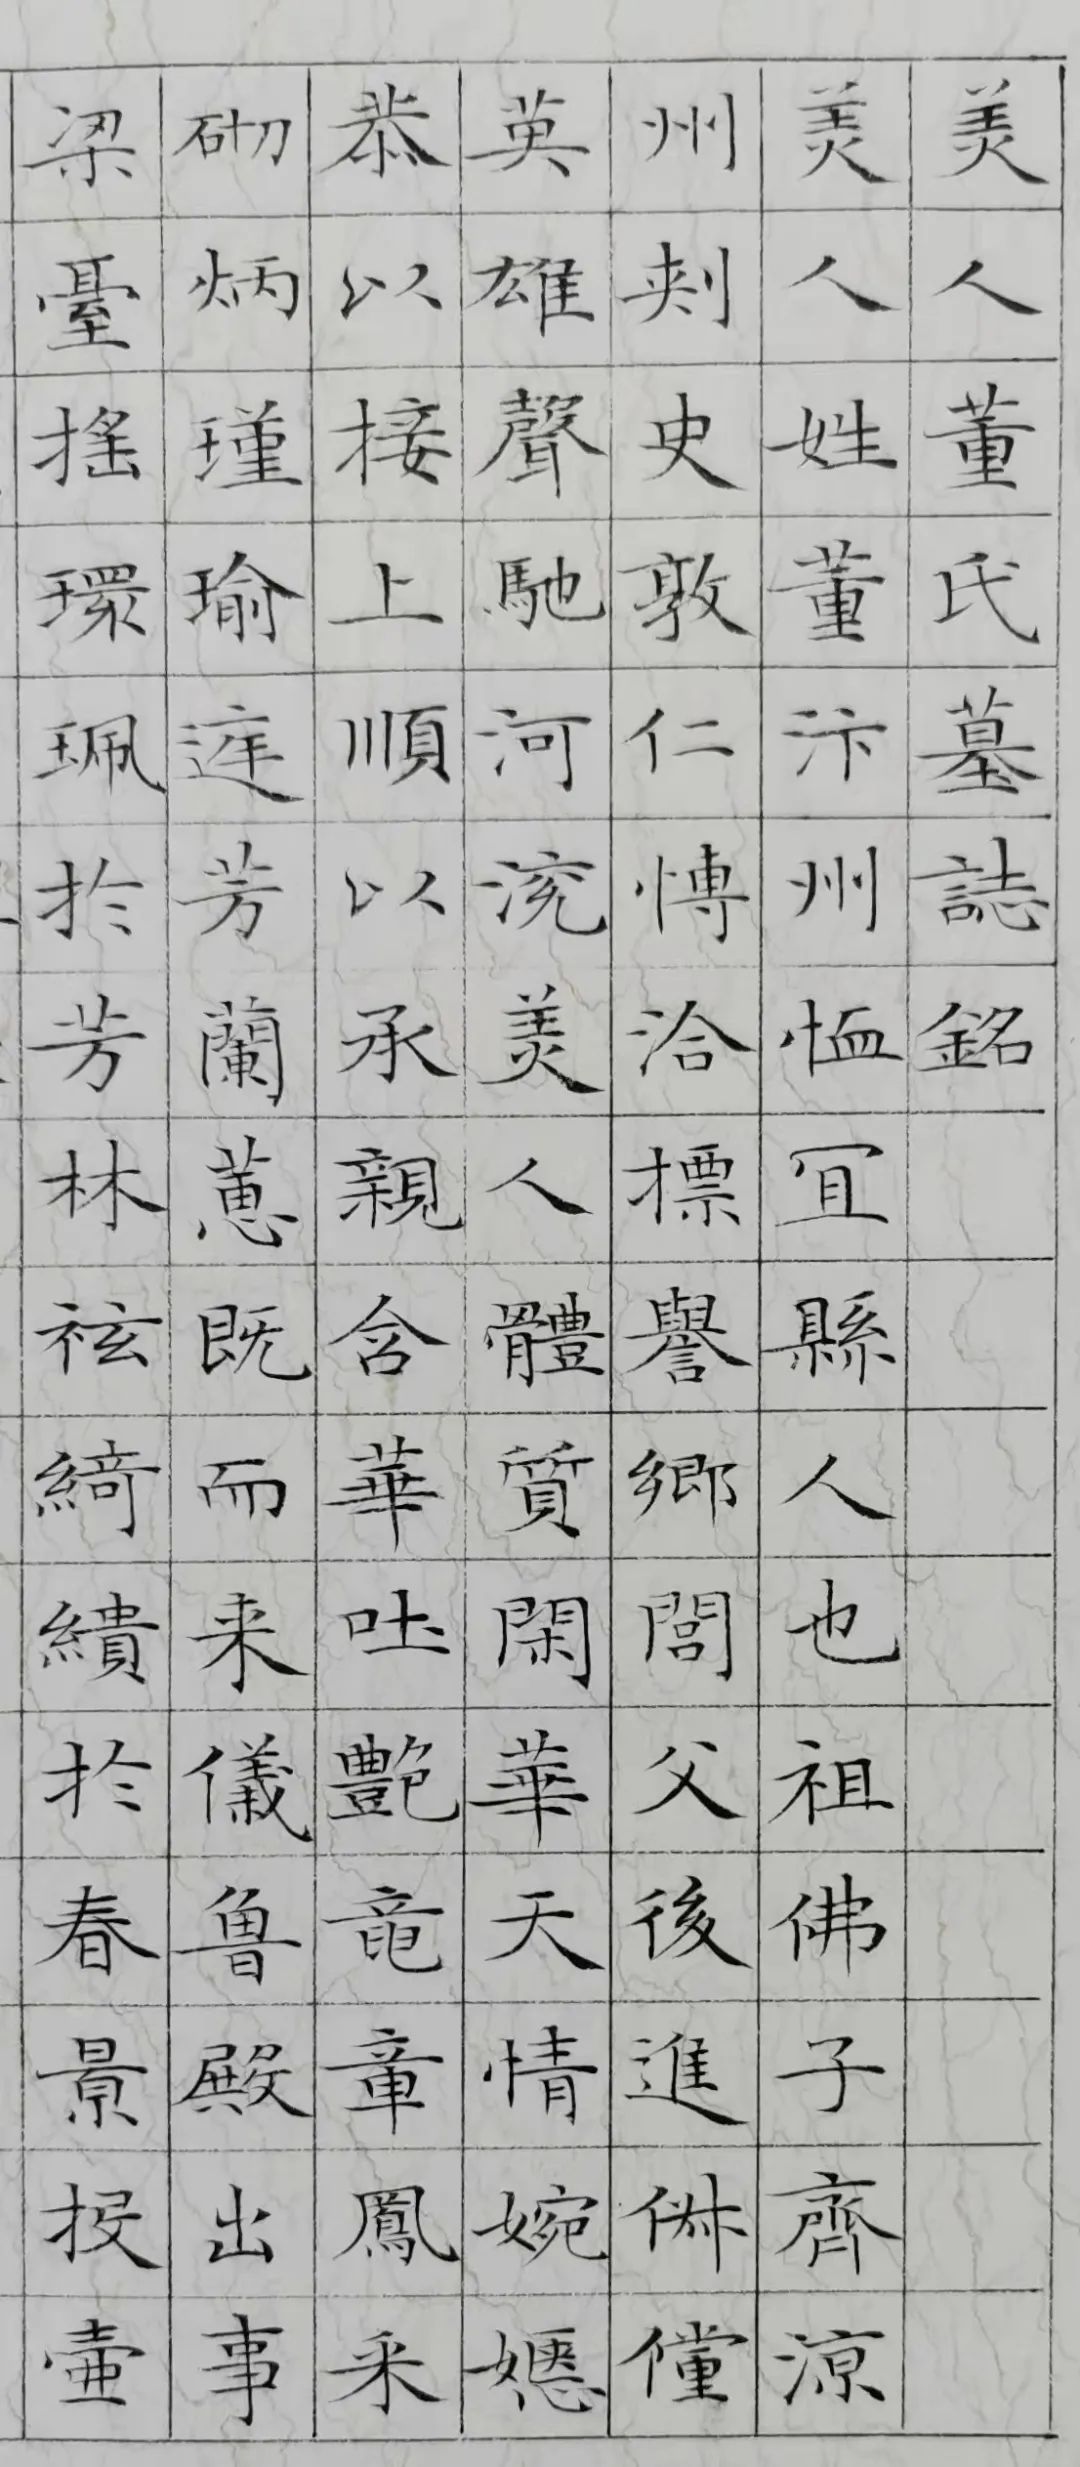 美人董氏墓誌銘
美人姓董汴州恤冝縣人也祖佛子齊涼
州刾史敦仁愽洽摽譽鄉閭父後進俶儻
英雄聲馳河沇美人體質閑華天情婉嫕
恭以接上順以承親含華吐艷竜章鳳采
砌炳瑾瑜庭芳蘭蕙既而来儀魯殿出事
梁臺搖環珮於芳林袨綺繢於春景投壷